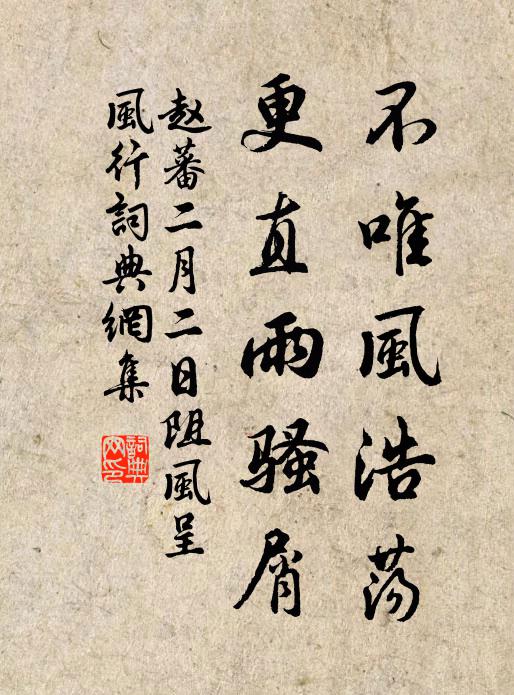 不唯風浩蕩
更直雨騷屑
赵蕃二月二日阻風呈
風行詞典網集
詞典網印